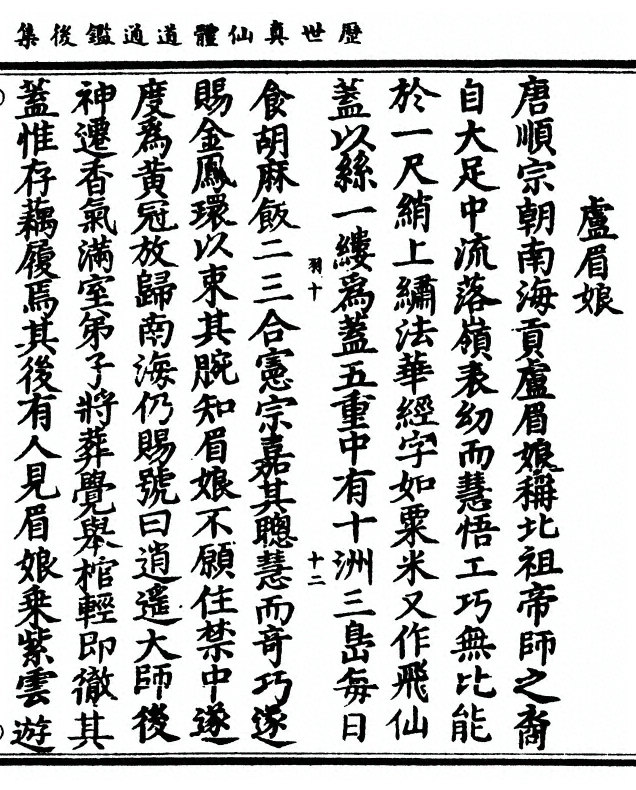 歷世真仙體道通鑑後集
盧眉娘
唐順宗朝南海貢盧眉娘稱北祖帝師之裔
自大足中流落嶺表幼而慧悟工巧無比能
於一尺綃上繡法華經字如粟米又作飛仙
蓋以絲一縷為蓋五重中有十洲三島每日
羽十
十二
食胡麻飯二三合憲宗嘉其聰慧而奇巧遂
賜金鳳環以束其腕知眉娘不願住禁中遂
度為黃冠放歸南海仍賜號曰逍遙大師後
神遷香氣滿室弟子將葬覺舉棺輕即徹其
蓋惟存藕履焉其後有人見眉娘乘紫雲遊